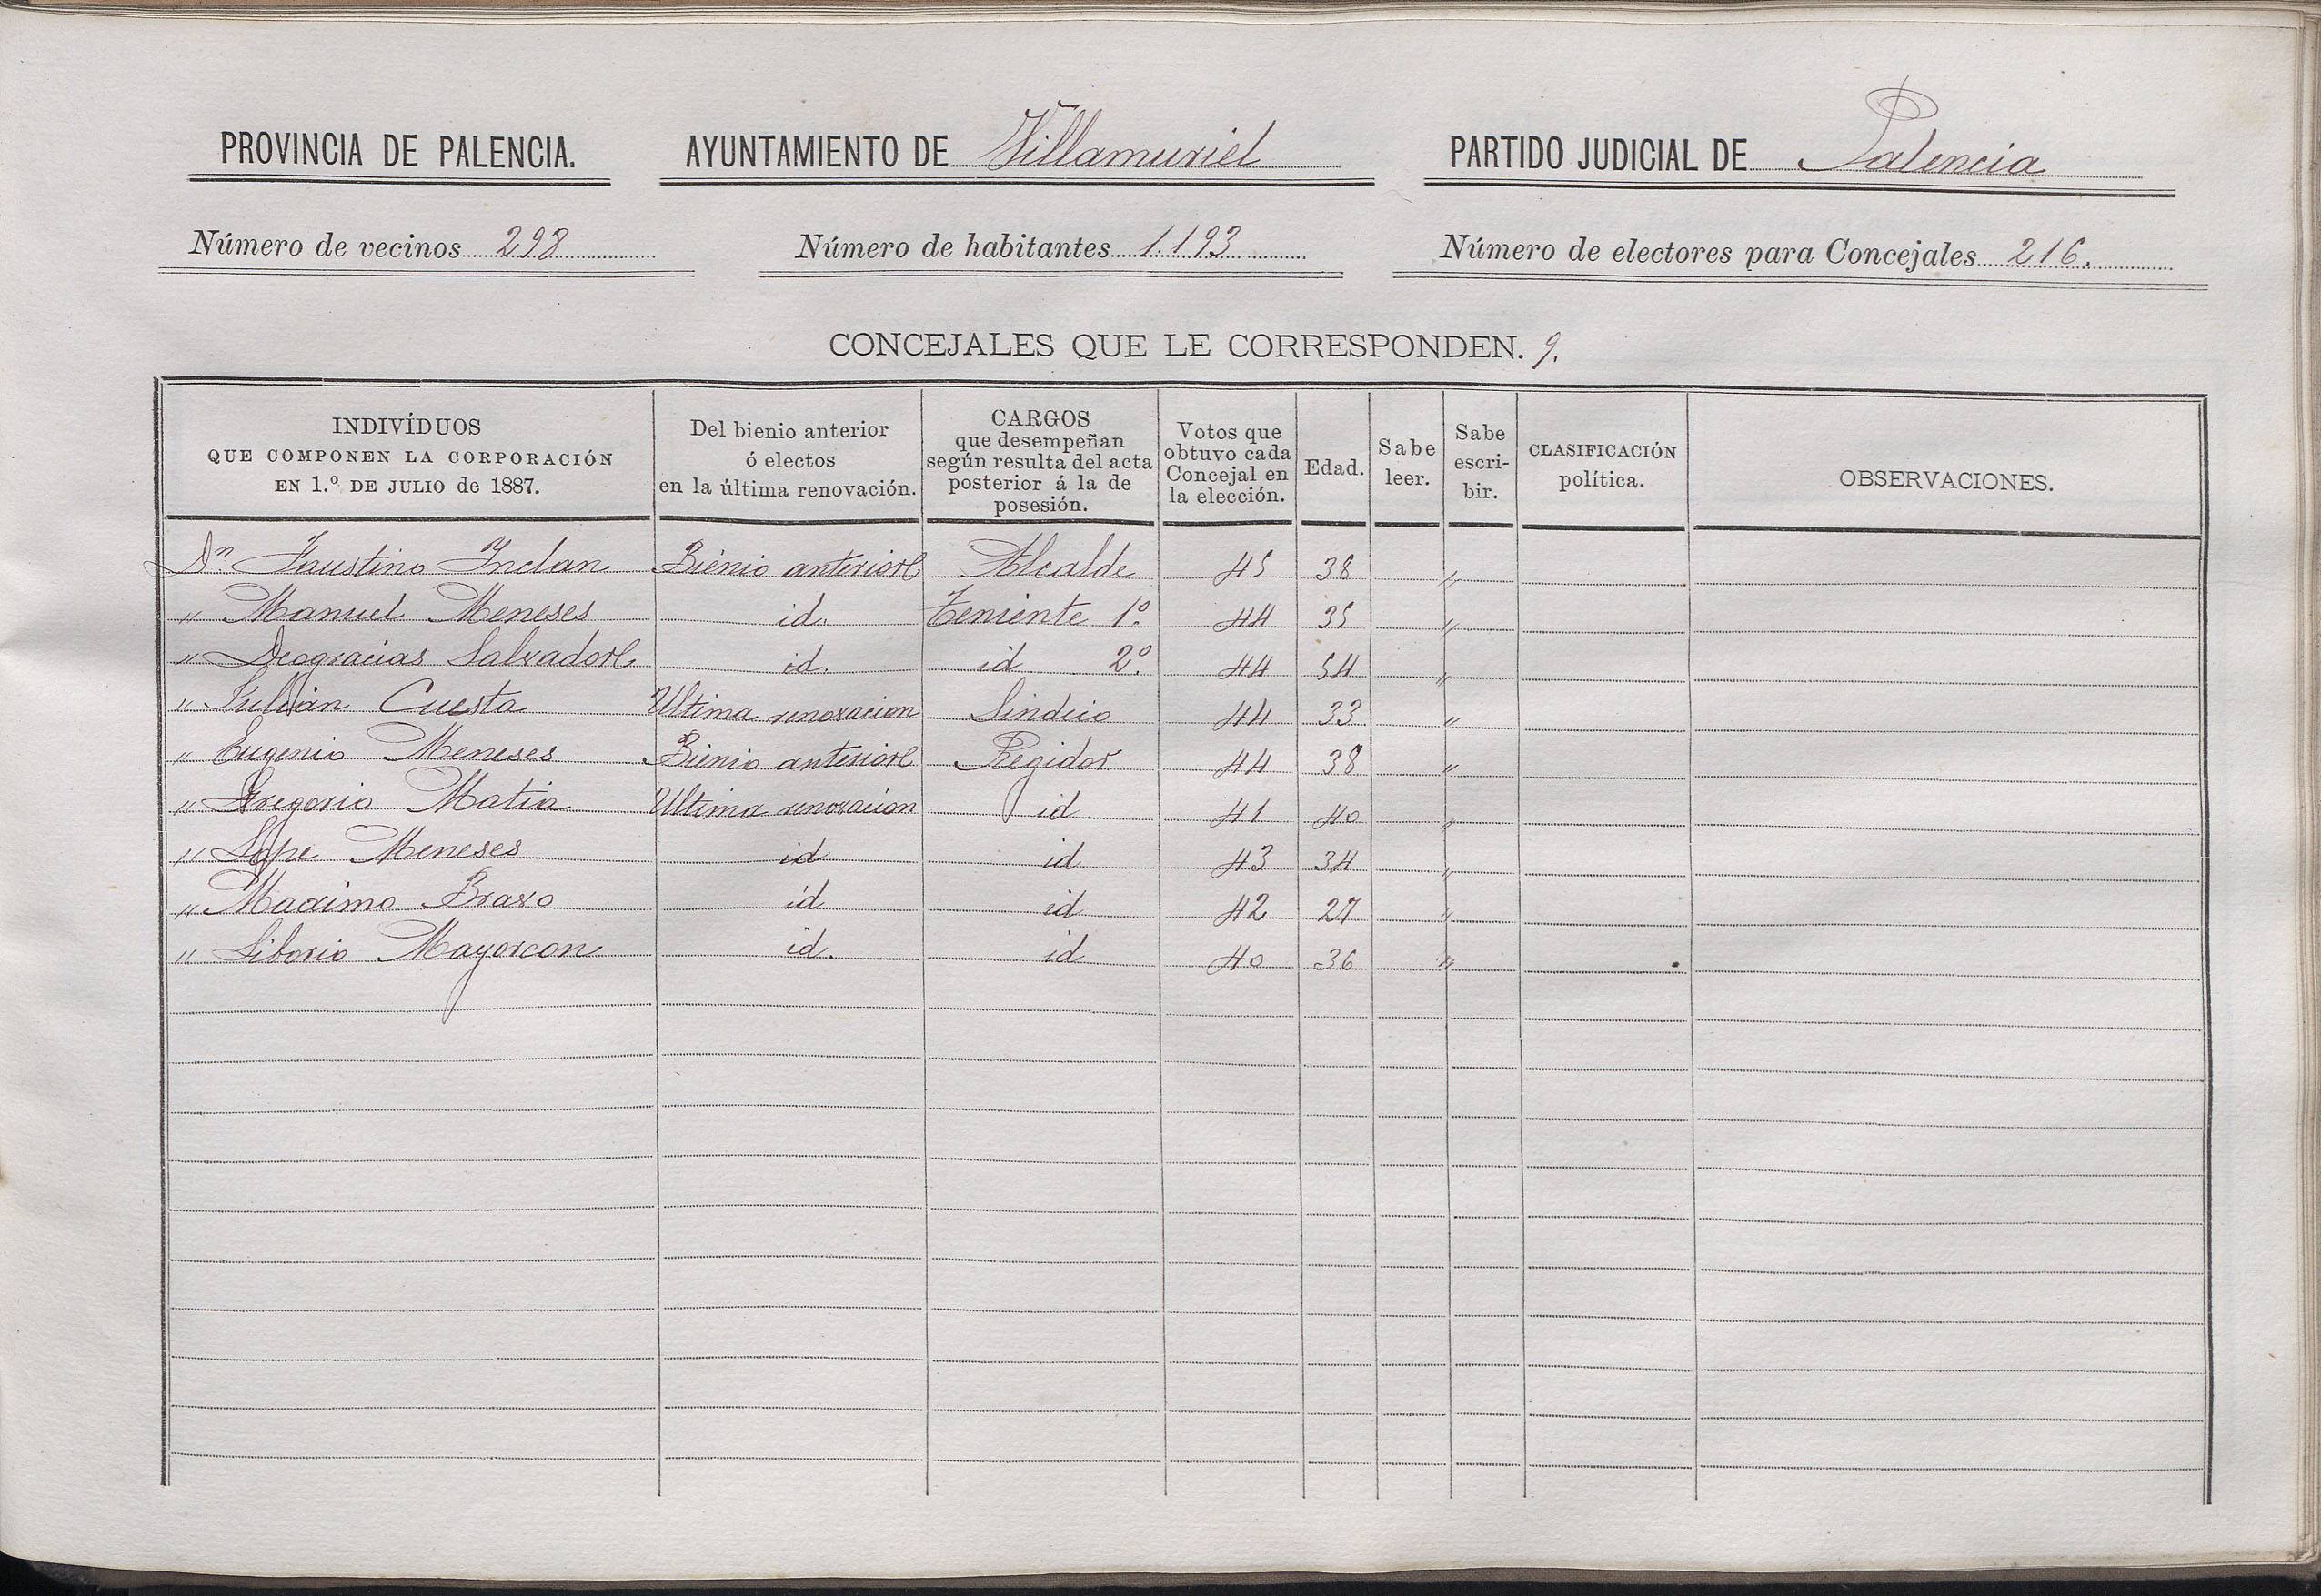 PROVINCIA DE PALENCIA. AYUNTAMIENTO DE Villamuriel PARTIDO JUDICIAL DE Palencia
Número de vecinos 298 Número de habitantes 1.193 Número de electores para Concejales 216.
CONCEJALES QUE LE CORRESPONDEN. 9.
INDIVÍDUOS
QUE COMPONEN LA CORPORACIÓN
EN 1.º DE JULIO de 1887.
Del bienio anterior
ó electos
en la última renovación.
CARGOS
que desempeñan
según resulta del acta
posterior á la de
posesión.
Votos que
obtuvo cada
Concejal en
la elección.
Edad.
Sabe
leer.
Sabe
escri-
bir.
CLASIFICACIÓN
política.
OBSERVACIONES.
Dn. Faustino Inclan Bienio anterior Alcalde 45 38 "
" Manuel Meneses id. Teniente 1º. 44 35 "
" Deogracias Salvador id. id 2º. 44 54 "
" Julian Cuesta Ultima renovacion Sindico 44 33 "
" Eugenio Meneses Bienio anterior Regidor 44 38 "
" Gregorio Matia Ultima renovacion id 41 40 "
" Lope Meneses id id 43 34 "
" Maximo Bravo id id 42 27 "
" Liborio Mayorcon id. id 40 36 "